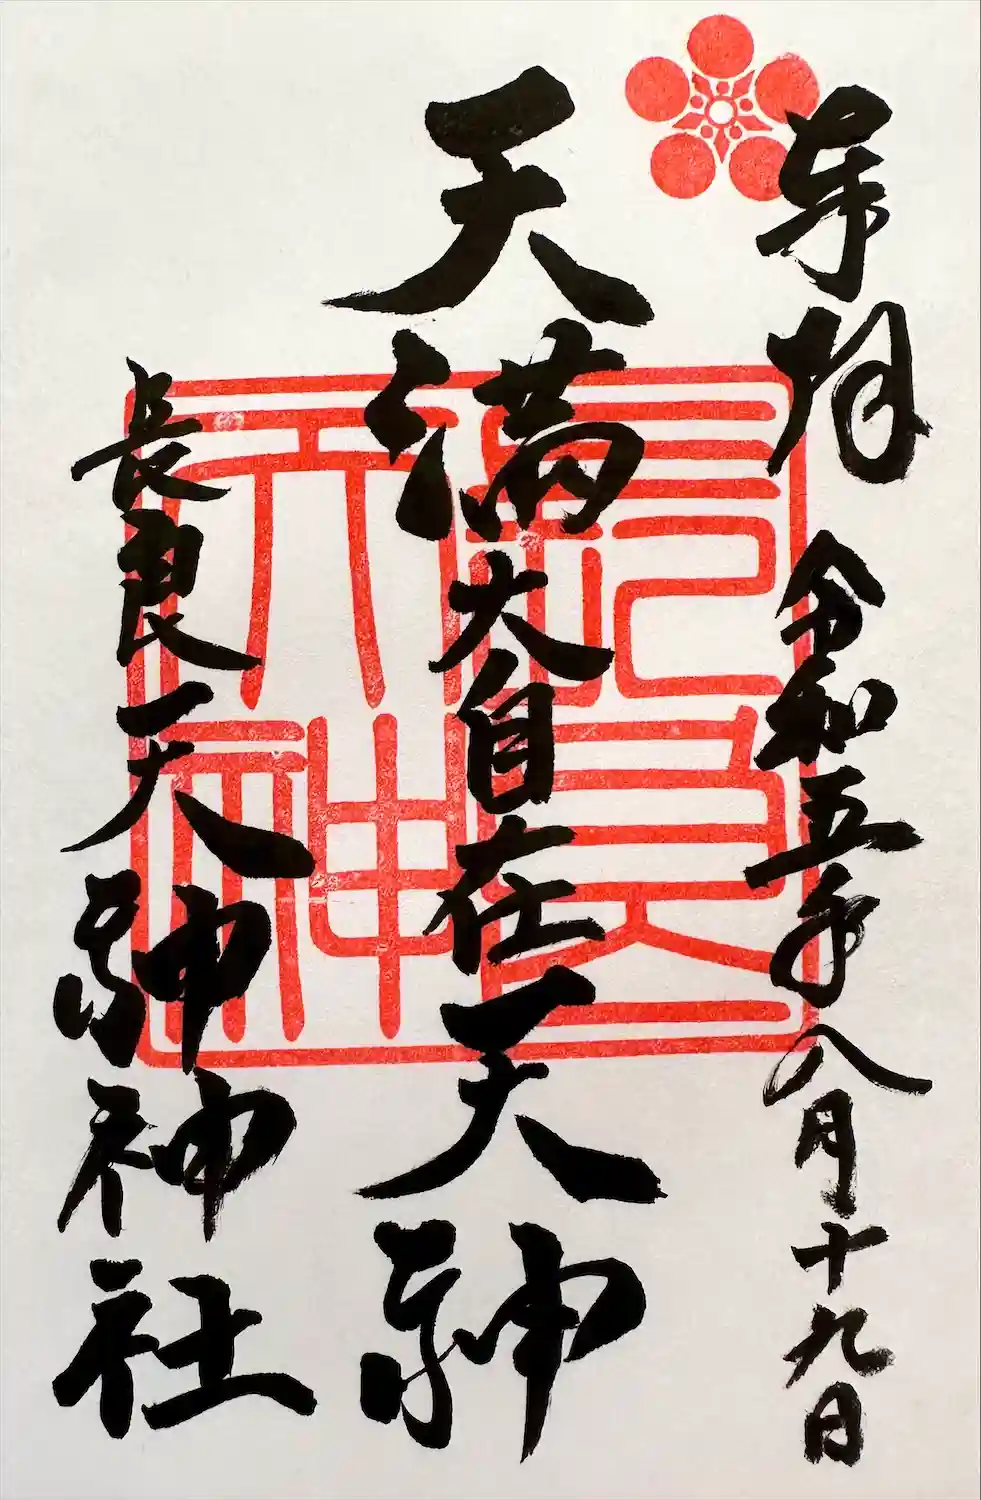 奉拝 令和五年八月十九日
天満大自在天神
長良天神神社
長良
天神